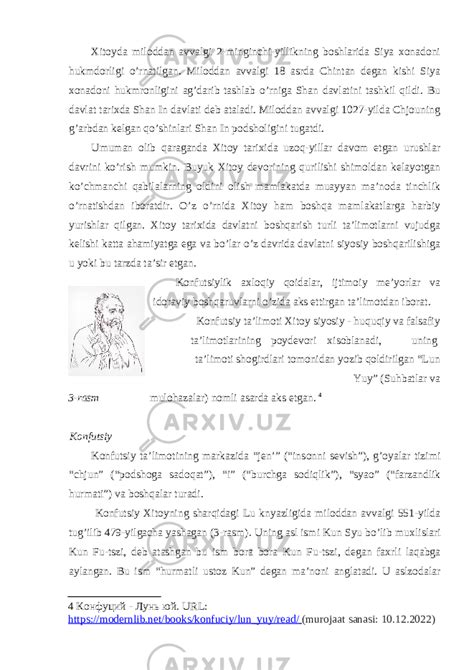 Xitoyda miloddan avvalgi 2 minginchi yillikning boshlarida Siya xonadoni
hukmdorligi o’rnatilgan. Miloddan avvalgi 18 asrda Chintan degan kishi Siya
xonadoni hukmronligini ag’darib tashlab o’rniga Shan davlatini tashkil qildi. Bu
davlat tarixda Shan In davlati deb ataladi. Miloddan avvalgi 1027-yilda Chjouning
g’arbdan kelgan qo’shinlari Shan In podsholigini tugatdi.
Umuman olib qaraganda Xitoy tarixida uzoq-yillar davom etgan urushlar
davrini ko’rish mumkin. Buyuk Xitoy devorining qurilishi shimoldan kelayotgan
ko’chmanchi qabilalarning oldini olish mamlakatda muayyan ma’noda tinchlik
o’rnatishdan iboratdir. O’z o’rnida Xitoy ham boshqa mamlakatlarga harbiy
yurishlar qilgan. Xitoy tarixida davlatni boshqarish turli ta’limotlarni vujudga
kelishi katta ahamiyatga ega va bo’lar o’z davrida davlatni siyosiy boshqarilishiga
u yoki bu tarzda ta’sir etgan.
Konfutsiylik axloqiy qoidalar, ijtimoiy me’yorlar va
idoraviy boshqaruvlarni o’zida aks ettirgan ta’limotdan iborat.
Konfutsiy ta’limoti Xitoy siyosiy - huquqiy va falsafiy
ta’limotlarining poydevori xisoblanadi, uning
ta’limoti shogirdlari tomonidan yozib qoldirilgan “Lun
Yuy” (Suhbatlar va
3-rasm mulohazalar) nomli asarda aks etgan. 4
Konfutsiy
Konfutsiy ta’limotining markazida “jen’” (“insonni sevish”), g’oyalar tizimi
“chjun” (“podshoga sadoqat”), “i” (“burchga sodiqlik”), “syao” (“farzandlik
hurmati”) va boshqalar turadi.
Konfutsiy Xitoyning sharqidagi Lu knyazligida miloddan avvalgi 551-yilda
tug’ilib 479-yilgacha yashagan (3-rasm). Uning asl ismi Kun Syu bo’lib muxlislari
Kun Fu-tszi, deb atashgan bu ism bora bora Kun Fu-tszi, degan faxrli laqabga
aylangan. Bu ism “hurmatli ustoz Kun” degan ma’noni anglatadi. U aslzodalar
4 Конфуций - Лунь юй. URL:
https://modernlib.net/books/konfuciy/lun_yuy/read/ (murojaat sanasi: 10.12.2022)